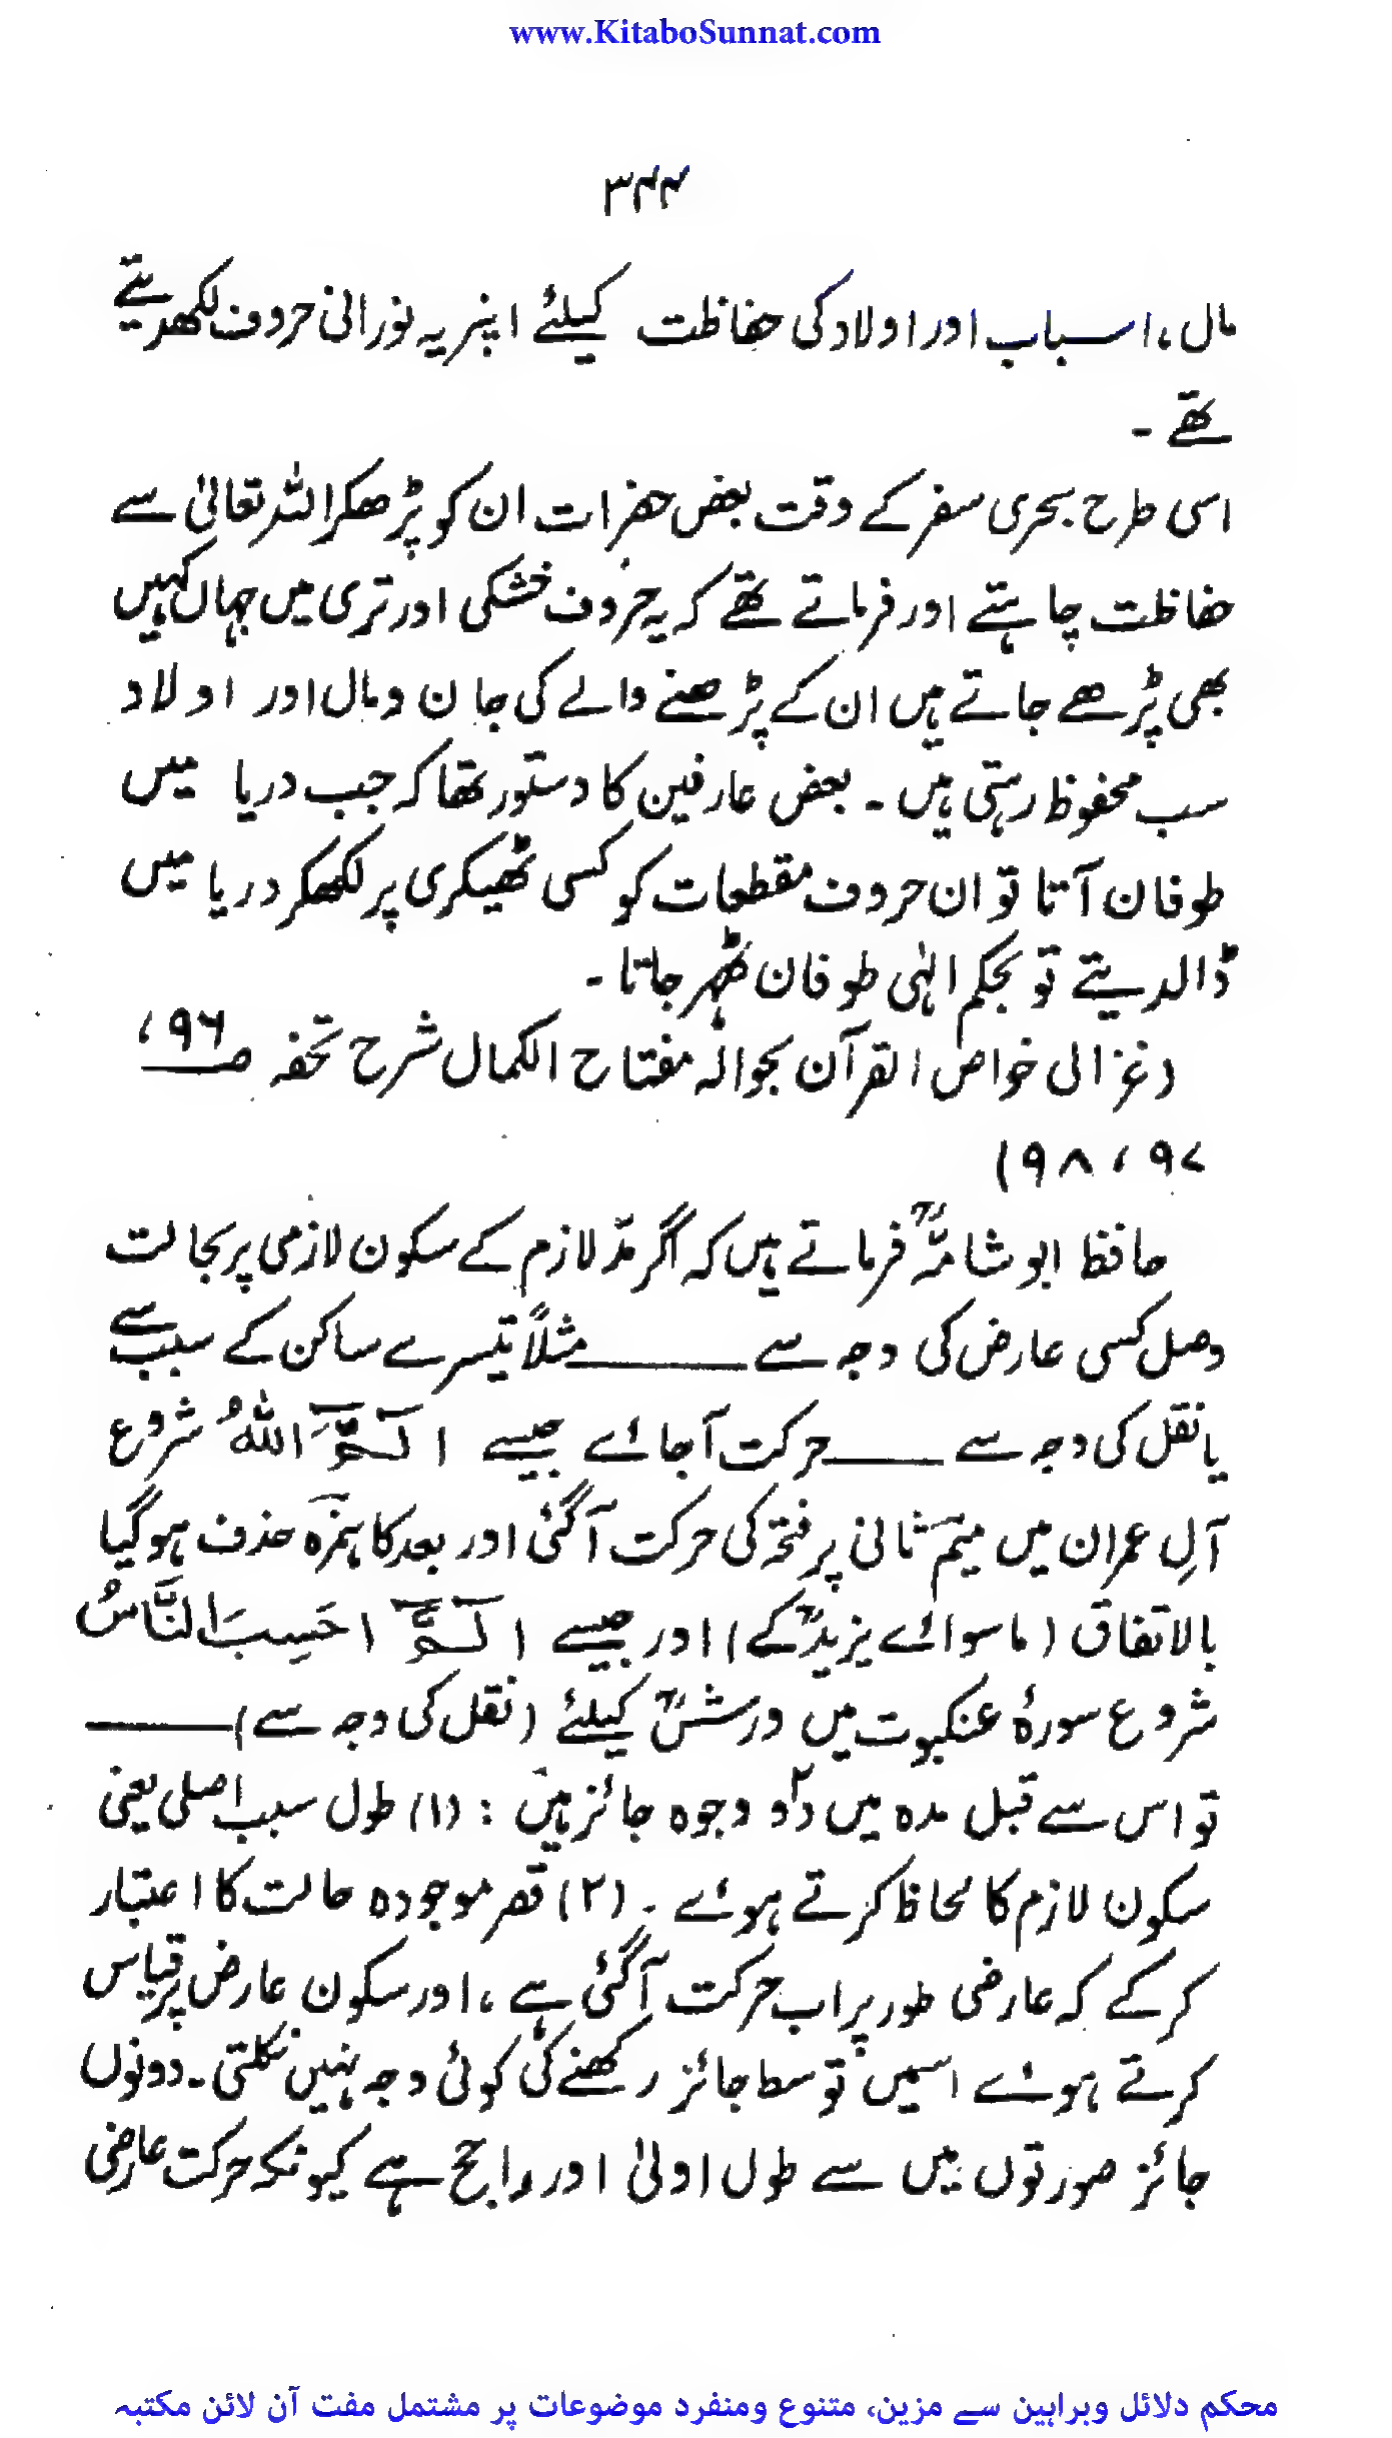 www.KitaboSunnat.com
۳۴۴
مال، اسباب اور اولاد کی حفاظت کیلئے اپنر یہ نورانی حروف لکھدیتے
تھے ۔
اسی طرح بحری سفر کے وقت بعض حضرات ان کو پڑھکر اللہ تعالیٰ سے
حفاظت چاہتے اور فرماتے تھے کہ یہ حروف خشکی اور تری میں جہاں کہیں
بھی پڑھے جاتے ہیں ان کے پڑھنے والے کی جان ومال اور اولاد
سب محفوظ رہتی ہیں ۔ بعض عارفین کا دستور تھا کہ جب دریا میں
طوفان آتا تو ان حروف مقطعات کو کسی ٹھیکری پر لکھکر دریا میں
ڈالدیتے تو بحکم الٰہی طوفان ٹھہر جاتا ۔
(غزالی خواص القرآن بحوالہ مفتاح الکمال شرح تحفہ صـ ۹۶،
۹۷، ۹۸)
حافظ ابو شامہؒ فرماتے ہیں کہ اگر مدّ لازم کے سکون لازمی پر بحالت
وصل کسی عارض کی وجہ سے ـــــــ مثلاً تیسرے ساکن کے سبب سے
یا نقل کی وجہ سے ـــــــ حرکت آجائے جیسے الٓمّٓ اللّٰہُ شروع
آلِ عمران میں میم ثانی پر فتحہ کی حرکت آگئی اور بعد کا ہمزہ حذف ہوگیا
بالاتفاق (ماسوائے یزیدؒ کے) اور جیسے الٓمّٓ احَسِبَ النَّاسُ
شروع سورۂ عنکبوت میں ورشؒ کیلئے (نقل کی وجہ سے) ـــــــ
تو اس سے قبل مدہ میں دو۲ وجوہ جائز ہیں : (۱) طول سبب اصلی یعنی
سکون لازم کا لحاظ کرتے ہوئے ۔ (۲) قصر موجودہ حالت کا اعتبار
کرکے کہ عارضی طور پر اب حرکت آگئی ہے، اور سکون عارض پر قیاس
کرتے ہوئے اسمیں توسط جائز رکھنے کی کوئی وجہ نہیں نکلتی ۔ دونوں
جائز صورتوں میں سے طول اولیٰ اور راجح ہے کیونکہ حرکت عارضی
محکم دلائل وبراہین سے مزین، متنوع ومنفرد موضوعات پر مشتمل مفت آن لائن مکتبہ